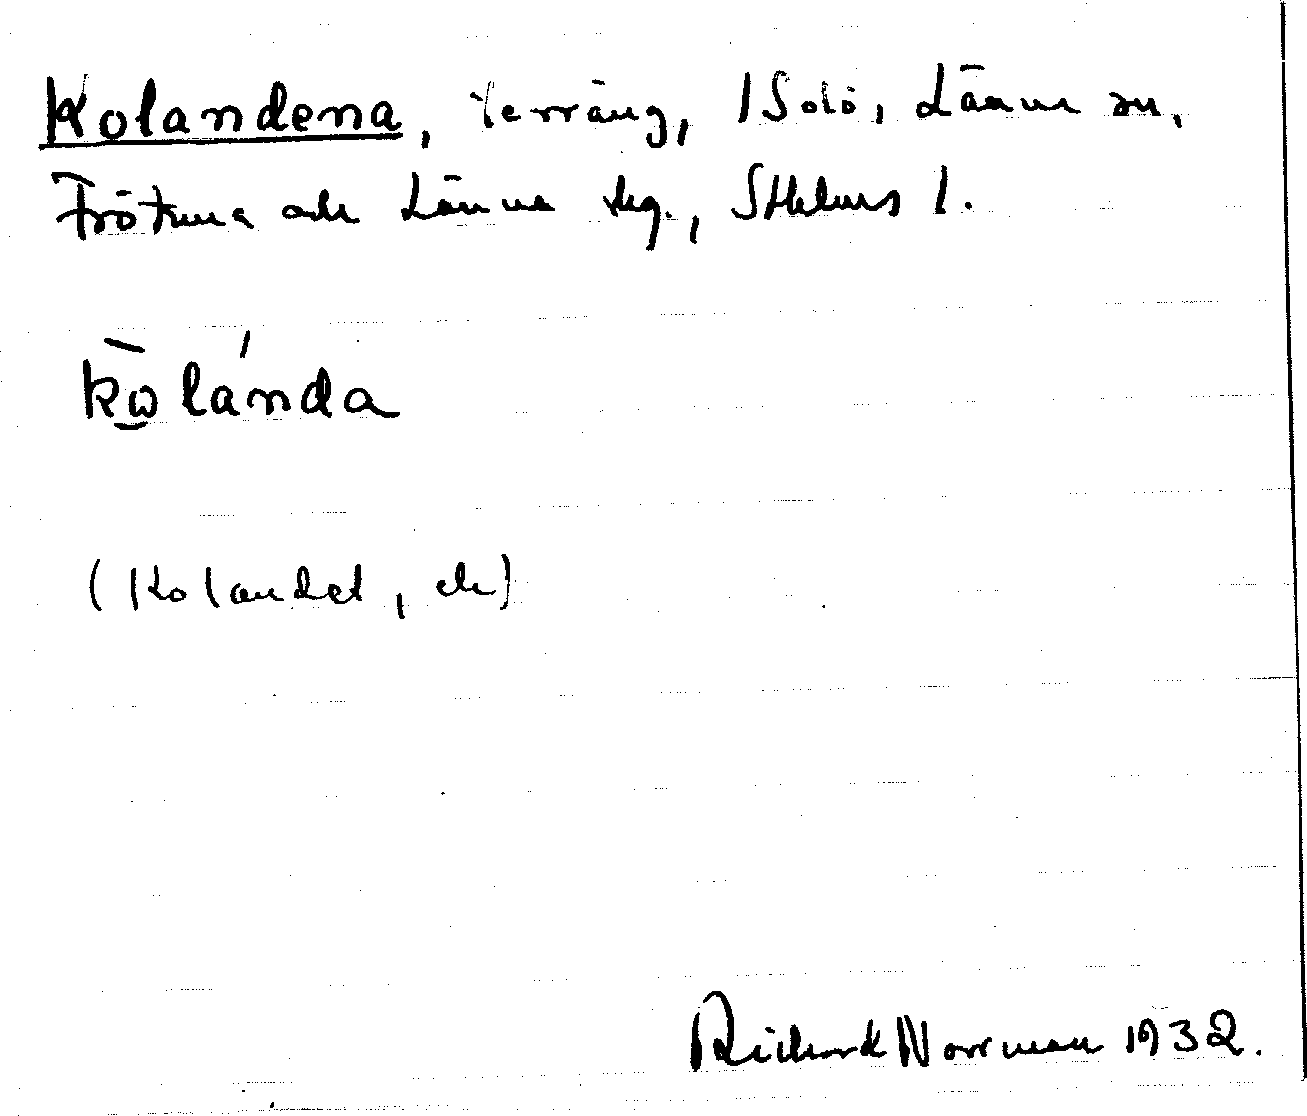 Kolandena, terräng, Isolö, Länna sn,
Frötuna och Länna skg., Sthlms l.
kωlánda
(Kolandet, ek)
Richard Norrman 1932.